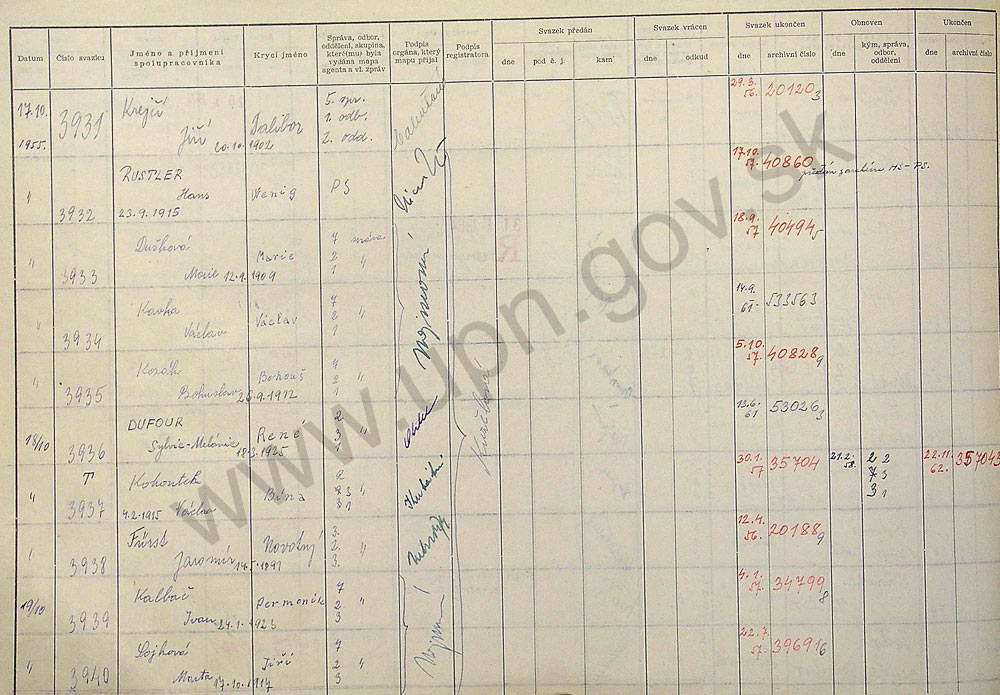 Datum Číslo svazku Jméno a příjmení spolupracovníka Krycí jméno Správa, odbor, oddělení, skupina, které(mu) byla vydána mapa agenta a vl. zpráv Podpis orgána, který mapu přijal Podpis registratora Svazek předán Svazek vrácen Svazek ukončen Obnoven Ukončen
dne pod č. j. kam dne odkud dne archivní číslo dne kým, správa, odbor, oddělení dne archivní číslo
17.10. 1955. 3931 Krejčí Jiří 20.10.1902 Dalibor 5. spr. 1. odb. 2. odd. 29.3. 56. 20120 3
" 3932 RUSTLER Hans 23.9.1915 Wenig PS 17.10. 57. 40860
" 3933 Dušková Marie 12.9.1909 Marie 7 správa 2 " 1 18.9. 57 40494 5
" 3934 Kavka Václav Václav 7 2 " 1 14.9. 61 533563
" 3935 Kozák Bohuslav Bohouš 7 2 " 1 5.10. 57. 40828 9
18/10 3936 DUFOUR Sylvie-Melánie 18.3.1925 René 2 3 " 13.6. 61 53026 3
" T 3937 Kohoutek Václav 4.2.1915 Bína 2 30.1. 57 35704 21.2. 58. 2 2 7 3 3 1 22.11. 62. 357043
" 3938 Fürst Jaromír 14.5.1891 Novotný 3. 2. " 3. 12.4. 56. 20188 9
19/10 3939 Kalbáč Ivan 24.1.1923 Permoník 7 2 " 3 4.1. 57. 34799 8
" 3940 Sojková Marta 17.10.1917 Jiří 7 2 " 3 22.7. 57. 39691 6
www.upn.gov.sk